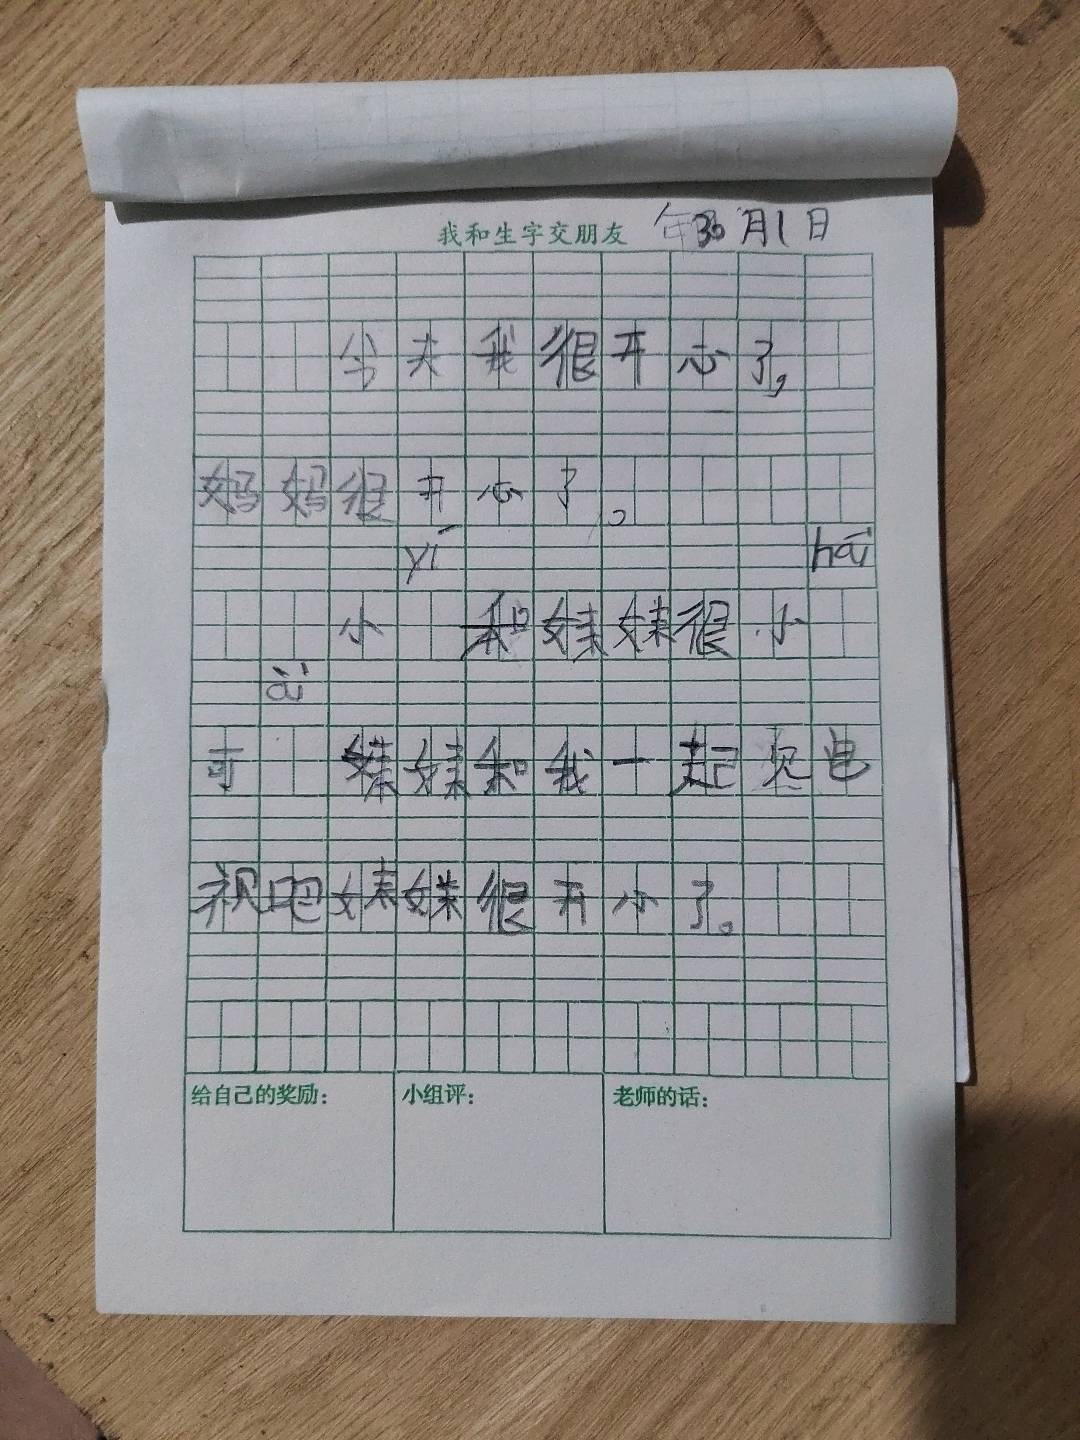 我和生字交朋友 年30月1日
今天我很开心了，
妈妈很开心了。
yí hái
小 和妹妹很小
ài
可 妹妹和我一起见电
视吧妹妹很开小了。
给自己的奖励： 小组评： 老师的话：